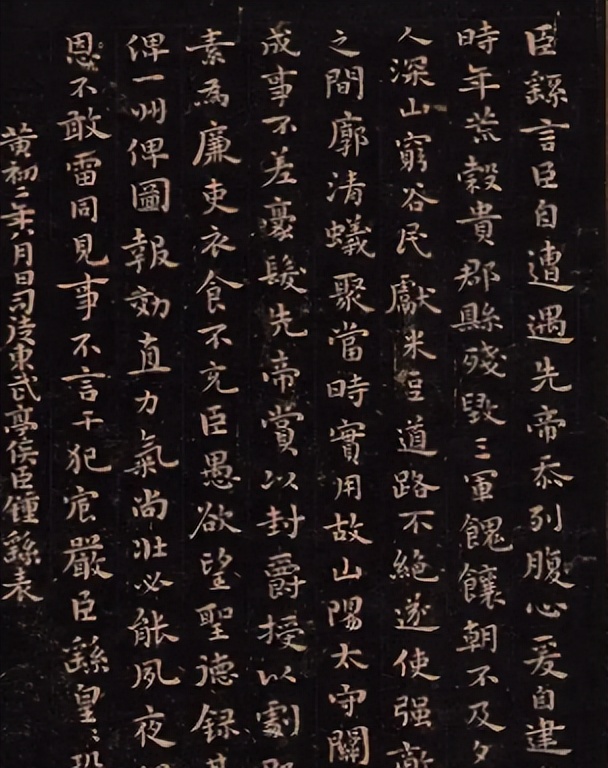 臣繇言臣自遭遇先帝忝列腹心爰自建
時年荒穀貴郡縣殘毀三軍餽饟朝不及夕
人深山窮谷民獻米豆道路不絕遂使强敵
之間廓清蟻聚當時實用故山陽太守關
成事不差豪髮先帝賞以封爵授以劇郡
素為廉吏衣食不充臣愚欲望聖德錄其
俾一州俾圖報効直力氣尚壯必能夙夜
恩不敢雷同見事不言干犯宸嚴臣繇皇〻恐
黃初二年八月日司徒東武亭侯臣鍾繇表